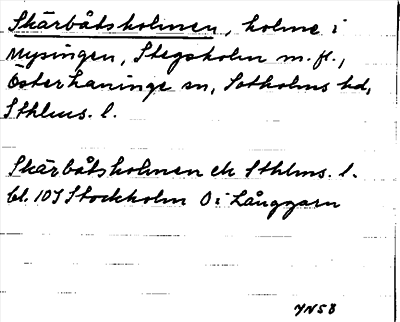 Skärbåtsholmen, holme i
Mysingen, Stegsholm m.fl.,
Österhaninge sn, Sotholms hd,
Sthlms. l.
Skärbåtsholmen ek Sthlms. l.
bl. 10J Stockholm O i Långgarn
YNSB